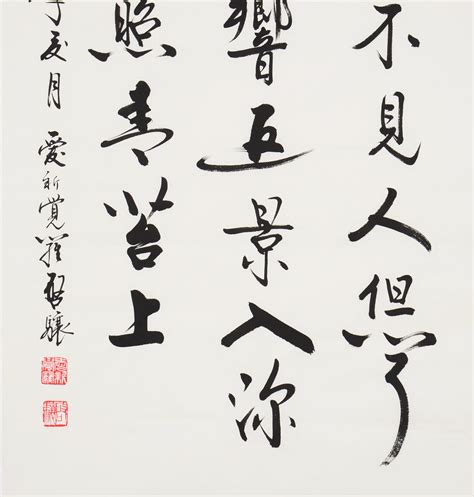 不見人但聞
響返景入深
照青苔上
夏月 愛新覺羅啓驤